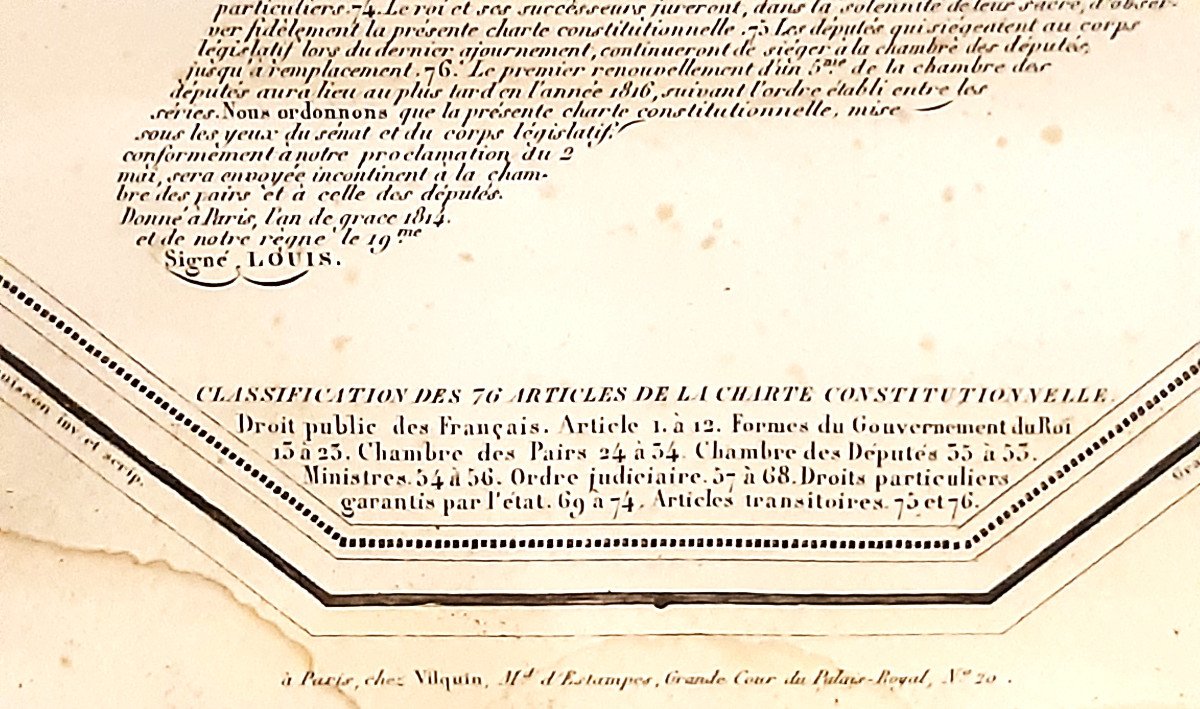 particuliers. 74. Le roi et ses successeurs jureront, dans la solennité de leur sacre, d'obser-
ver fidèlement la présente charte constitutionnelle. 75 Les députés qui siégeaient au corps
législatif lors du dernier ajournement, continueront de siéger à la chambre des députés,
jusqu'à remplacement. 76. Le premier renouvellement d'un 5me de la chambre des
députés aura lieu au plus tard en l'année 1816, suivant l'ordre établi entre les
séries. Nous ordonnons que la présente charte constitutionnelle, mise
sous les yeux du sénat et du corps législatif,
conformément à notre proclamation du 2
mai, sera envoyée incontinent à la cham-
bre des pairs et à celle des députés.
Donné à Paris, l'an de grace 1814.
et de notre règne le 19me
Signé, LOUIS.
CLASSIFICATION DES 76 ARTICLES DE LA CHARTE CONSTITUTIONNELLE.
Droit public des Français. Article 1. à 12. Formes du Gouvernement du Roi
13 à 23. Chambre des Pairs 24 à 34. Chambre des Députés 35 à 53.
Ministres. 54 à 56. Ordre judiciaire. 57 à 68. Droits particuliers
garantis par l'état. 69 à 74. Articles transitoires. 75 et 76.
inv. et scrip.
à Paris, chez Vilquin, Md d'Estampes, Grande Cour du Palais-Royal, No 20.